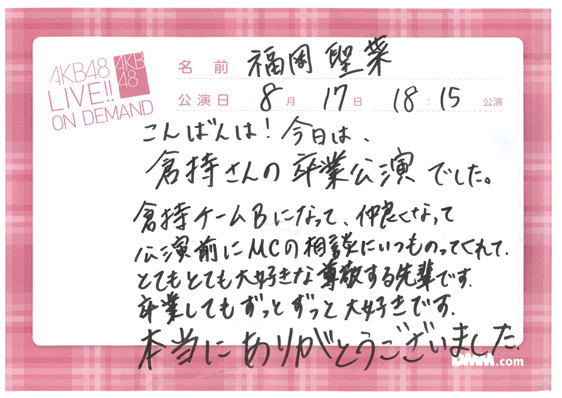 AKB48
LIVE!!
ON DEMAND
AKB
48
名前 福岡聖菜
公演日 8月 17日 18:15公演
こんばんは！今日は、
倉持さんの卒業公演でした。
倉持チームBになって、仲良くなって
公演前にMCの相談にいつものってくれて、
とてもとても大好きな尊敬する先輩です。
卒業してもずっとずっと大好きです。
本当にありがとうございました。
DMM.com